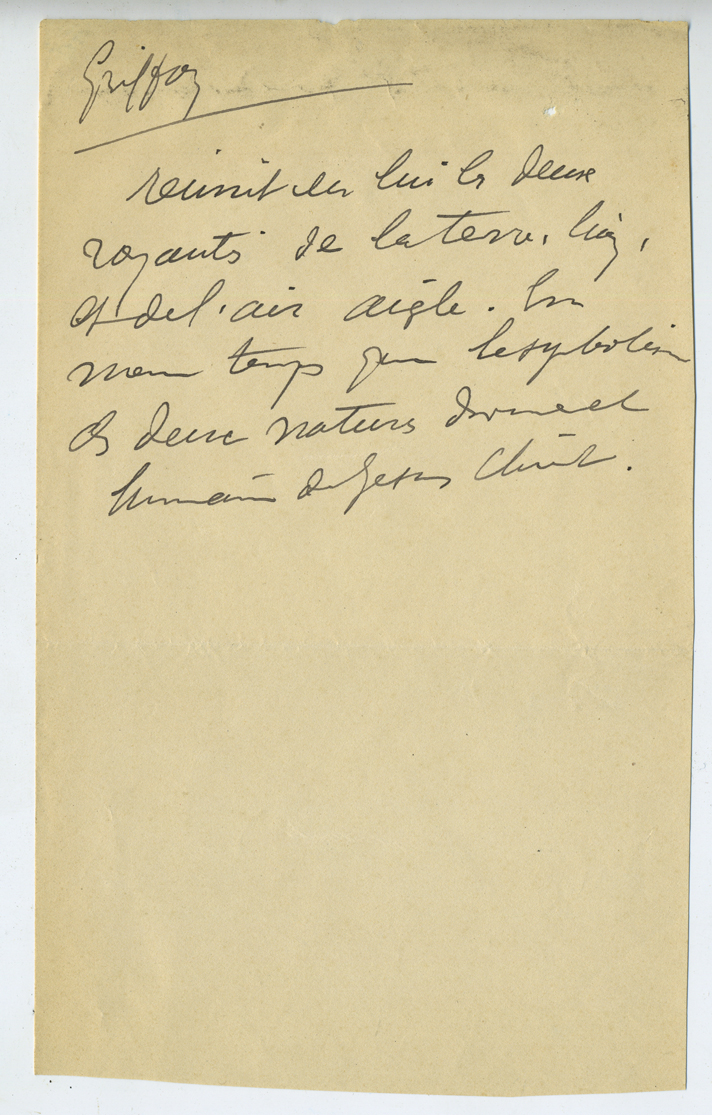 Griffon
réunit en lui les deux
royautés de la terre, lion,
et de l'air aigle. En
meme temps que le symbolisme
des deux natures divine et
humaine de Jesus Christ.